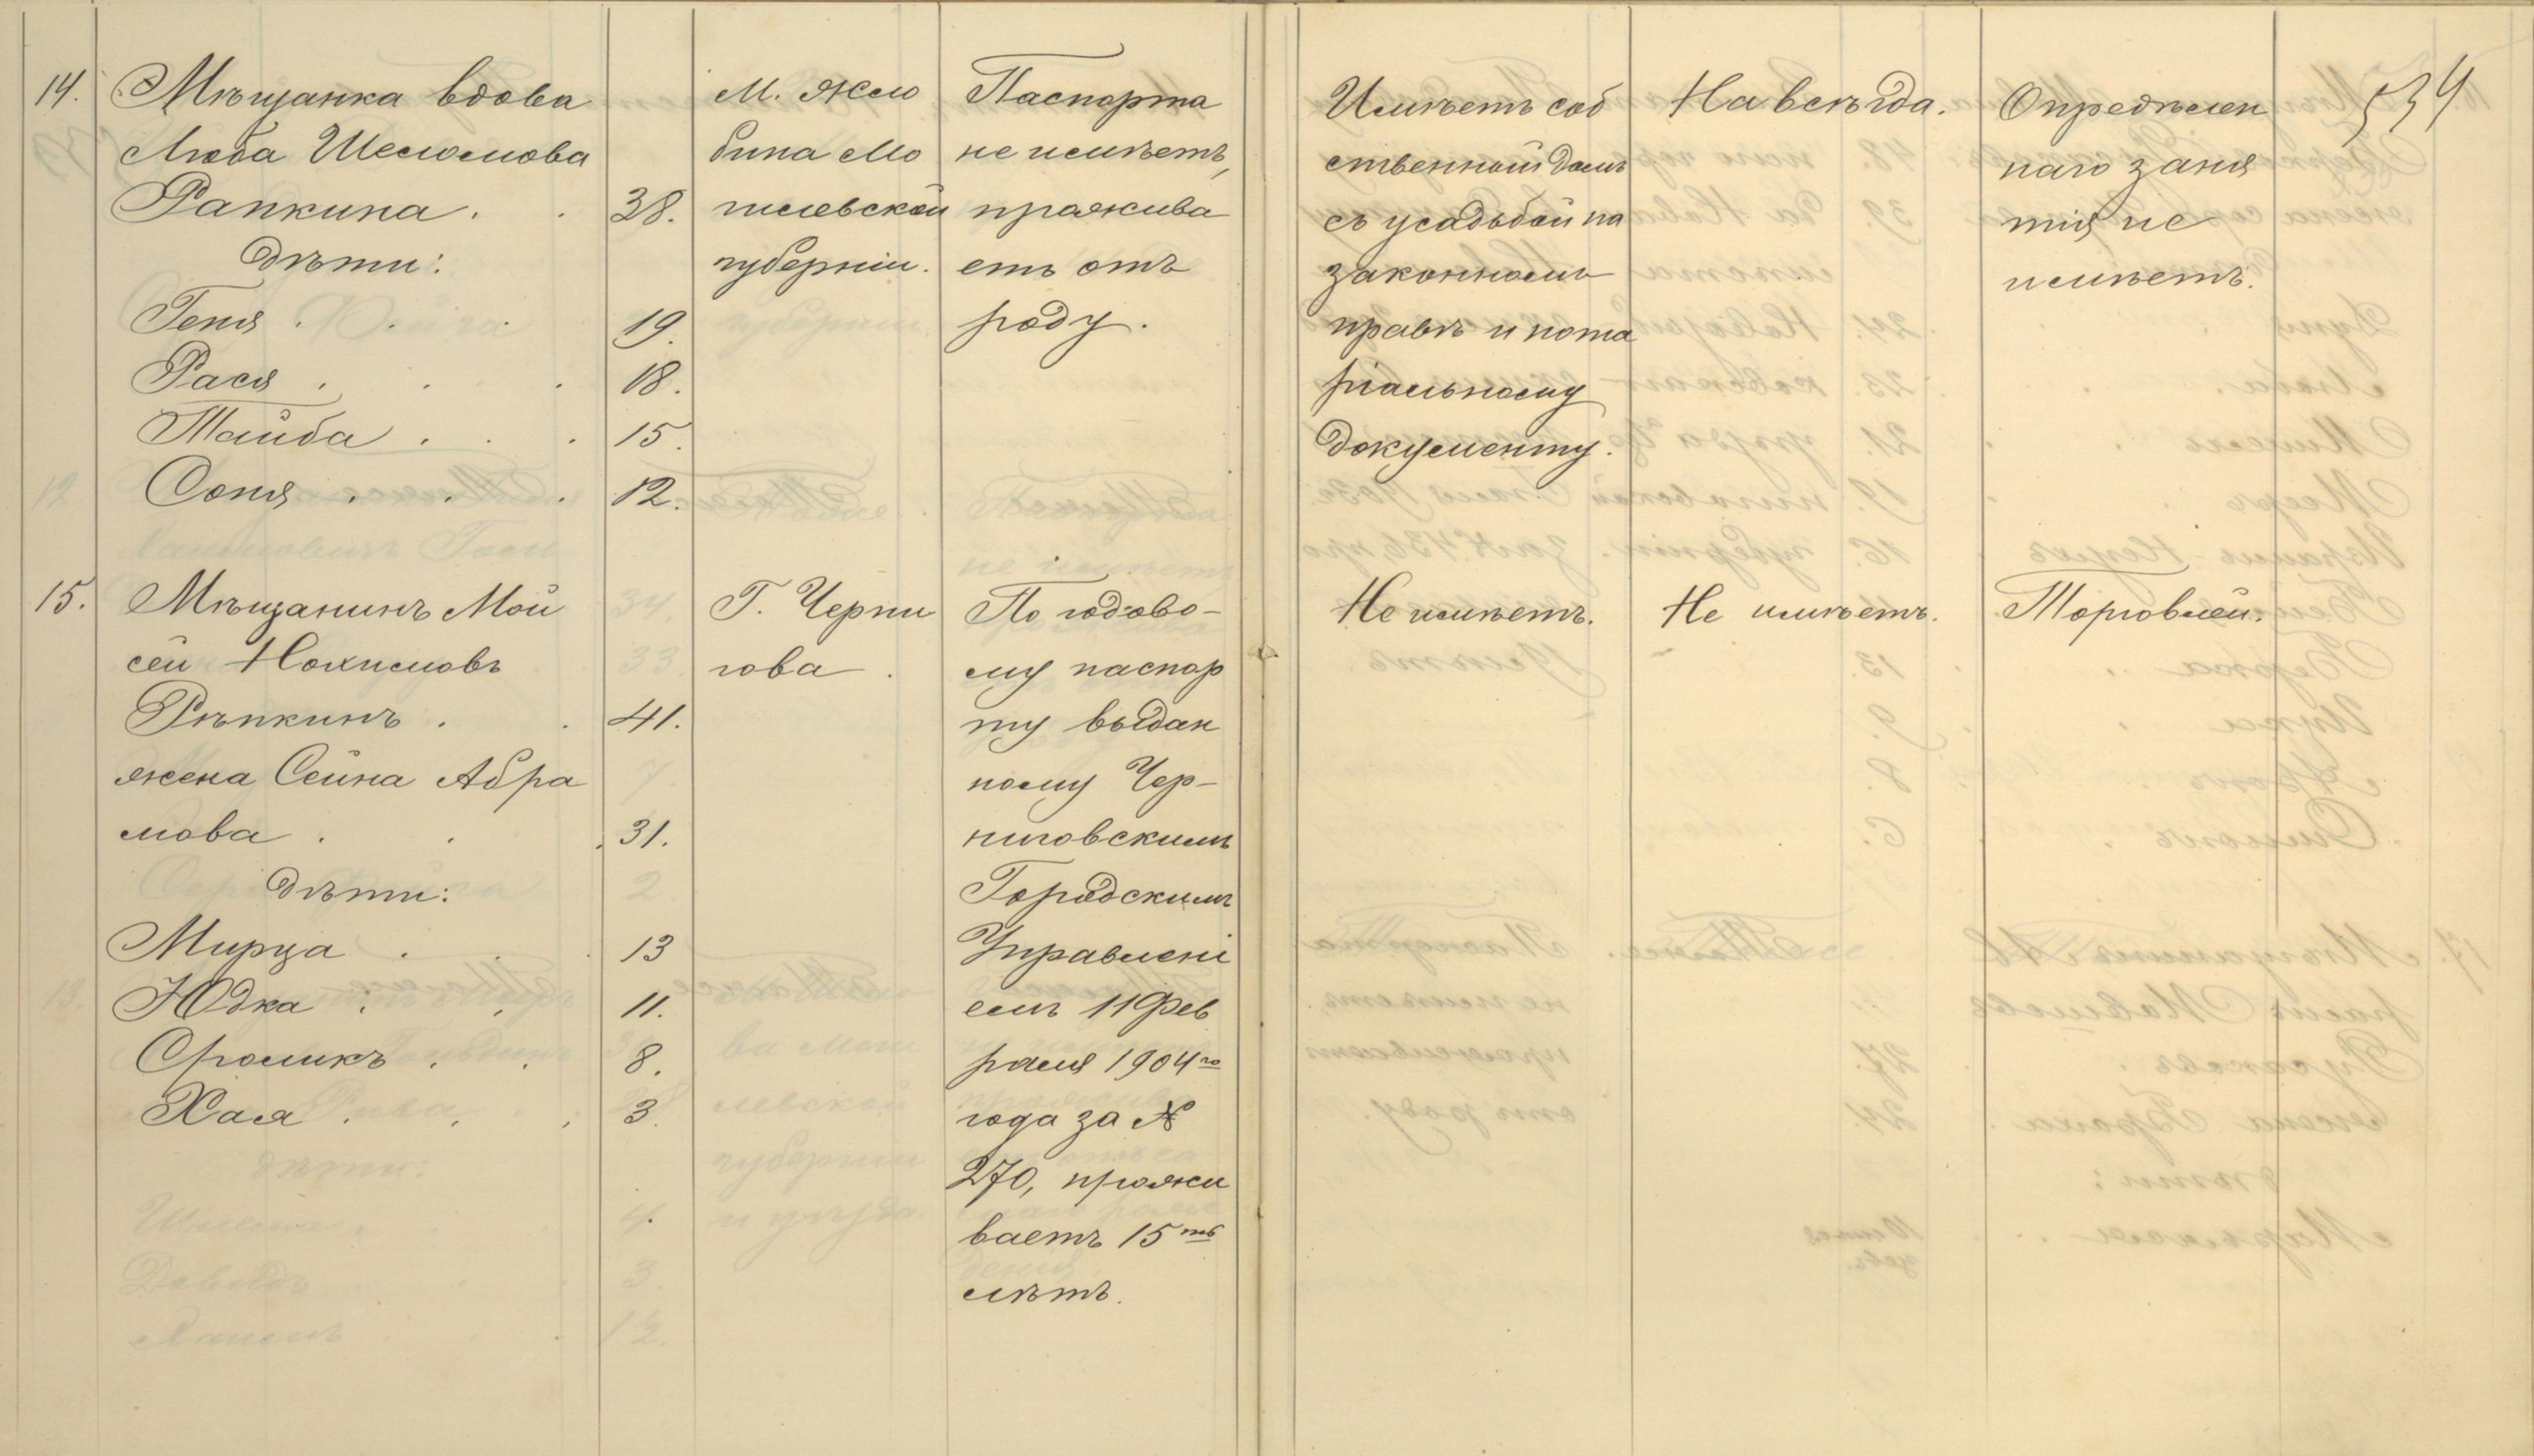 534
14.
Мѣщанка вдова
Люба Шеломова
Рапкина . . 38.
дѣти:
Геня . . . 19.
Рася . . . 18.
Тайба . . . 15.
Соня . . . 12.
М. Жло
бина Мо
гилевской
губерніи.
Паспорта
не имѣетъ,
прожива
етъ отъ
роду.
Имѣетъ соб
ственный домъ
съ усадьбой на
законномъ
правѣ и нота
ріальному
документу.
На всѣгда.
Опредѣлен
наго заня
тія не
имѣетъ.
15.
Мѣщанинъ Мой
сей Нохимовъ
Рѣпкинъ . . 41.
жена Сейна Абра
мова . . . 31.
дѣти:
Мирца . . . 13
Юдка . . 11.
Сроликъ . . 8.
Хая . . . 3.
Г. Черни
гова .
По годово-
му паспор
ту выдан
ному Чер-
ниговскимъ
Городскимъ
Управлені
емъ 11 Фев
раля 1904го
года за №
270, прожи
ваетъ 15ть
лѣтъ.
Не имѣетъ.
Не имѣетъ.
Торговлей.